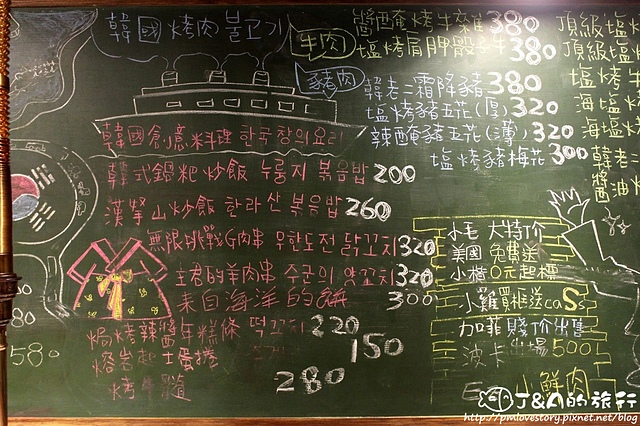 韓國 烤肉 불고기
牛肉
醬醃烤牛雜 380
塩烤肩胛骰子牛 380
豬肉
韓老二霜降豬 380
塩烤豬五花(厚) 320
辣醃豬五花(薄) 320
塩烤豬梅花 300
頂級塩
頂級塩
塩烤
海塩
海塩
韓老
醬油
韓國創意料理 한국 창의요리
韓式鍋粑炒飯 누룽지 볶음밥 200
漢拏山炒飯 한라산 볶음밥 260
無限挑戰G肉串 무한도전 닭꼬치 320
主君的羊肉串 주군의 양꼬치 320
来自海洋的 300
焗烤辣醬年糕條 떡꼬치 220
熔岩起士蛋捲 150
烤牛髓 280
80
580
小毛 大特价
美國 免費送
小橘 0元起標
小雞買框送caSs
加菲賤价出售
波卡 出場 500
小鮮肉
J&A的旅行
http://pmlovestory.pixnet.net/blog